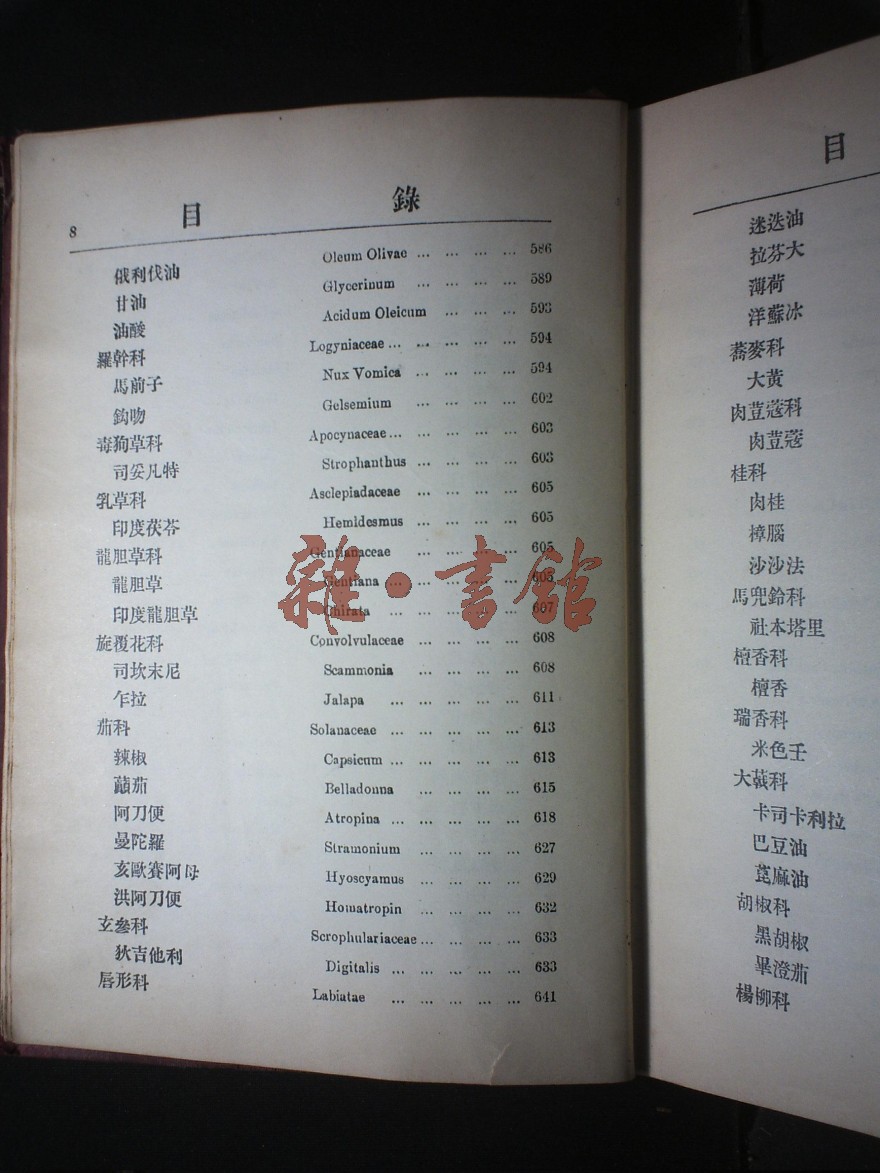 8 目 錄
俄利伐油 Oleum Olivae ... ... ... ... 586
甘油 Glycerinum ... ... ... ... 589
油酸 Acidum Oleicum ... ... ... 593
羅幹科 Logyniaceae ... ... ... ... ... 594
馬前子 Nux Vomica ... ... ... ... 594
鈎吻 Gelsemium ... ... ... ... 602
毒狗草科 Apocynaceae ... ... ... ... ... 603
司妥凡特 Strophanthus ... ... ... ... 603
乳草科 Asclepiadaceae ... ... ... ... 605
印度茯苓 Hemidesmus ... ... ... ... 605
龍胆草科 Gentianaceae ... ... ... ... 605
龍胆草 Gentiana ... ... ... ... ... 605
印度龍胆草 Chirata ... ... ... ... ... 607
旋覆花科 Convolvulaceae ... ... ... ... 608
司坎末尼 Scammonia ... ... ... ... 608
乍拉 Jalapa ... ... ... ... ... 611
茄科 Solanaceae ... ... ... ... ... 613
辣椒 Capsicum ... ... ... ... ... 613
蘱茄 Belladonna ... ... ... ... 615
阿刀便 Atropina ... ... ... ... ... 618
曼陀羅 Stramonium ... ... ... ... 627
亥歐賽阿母 Hyoscyamus ... ... ... ... 629
洪阿刀便 Homatropin ... ... ... ... 632
玄參科 Scrophulariaceae ... ... ... ... 633
狄吉他利 Digitalis ... ... ... ... ... 633
唇形科 Labiatae ... ... ... ... ... 641
雜·書館
目
迷迭油
拉芬大
薄荷
洋蘇冰
蕎麥科
大黃
肉荳蔻科
肉荳蔻
桂科
肉桂
樟腦
沙沙法
馬兜鈴科
社本塔里
檀香科
檀香
瑞香科
米色壬
大戟科
卡司卡利拉
巴豆油
蓖麻油
胡椒科
黑胡椒
畢澄茄
楊柳科